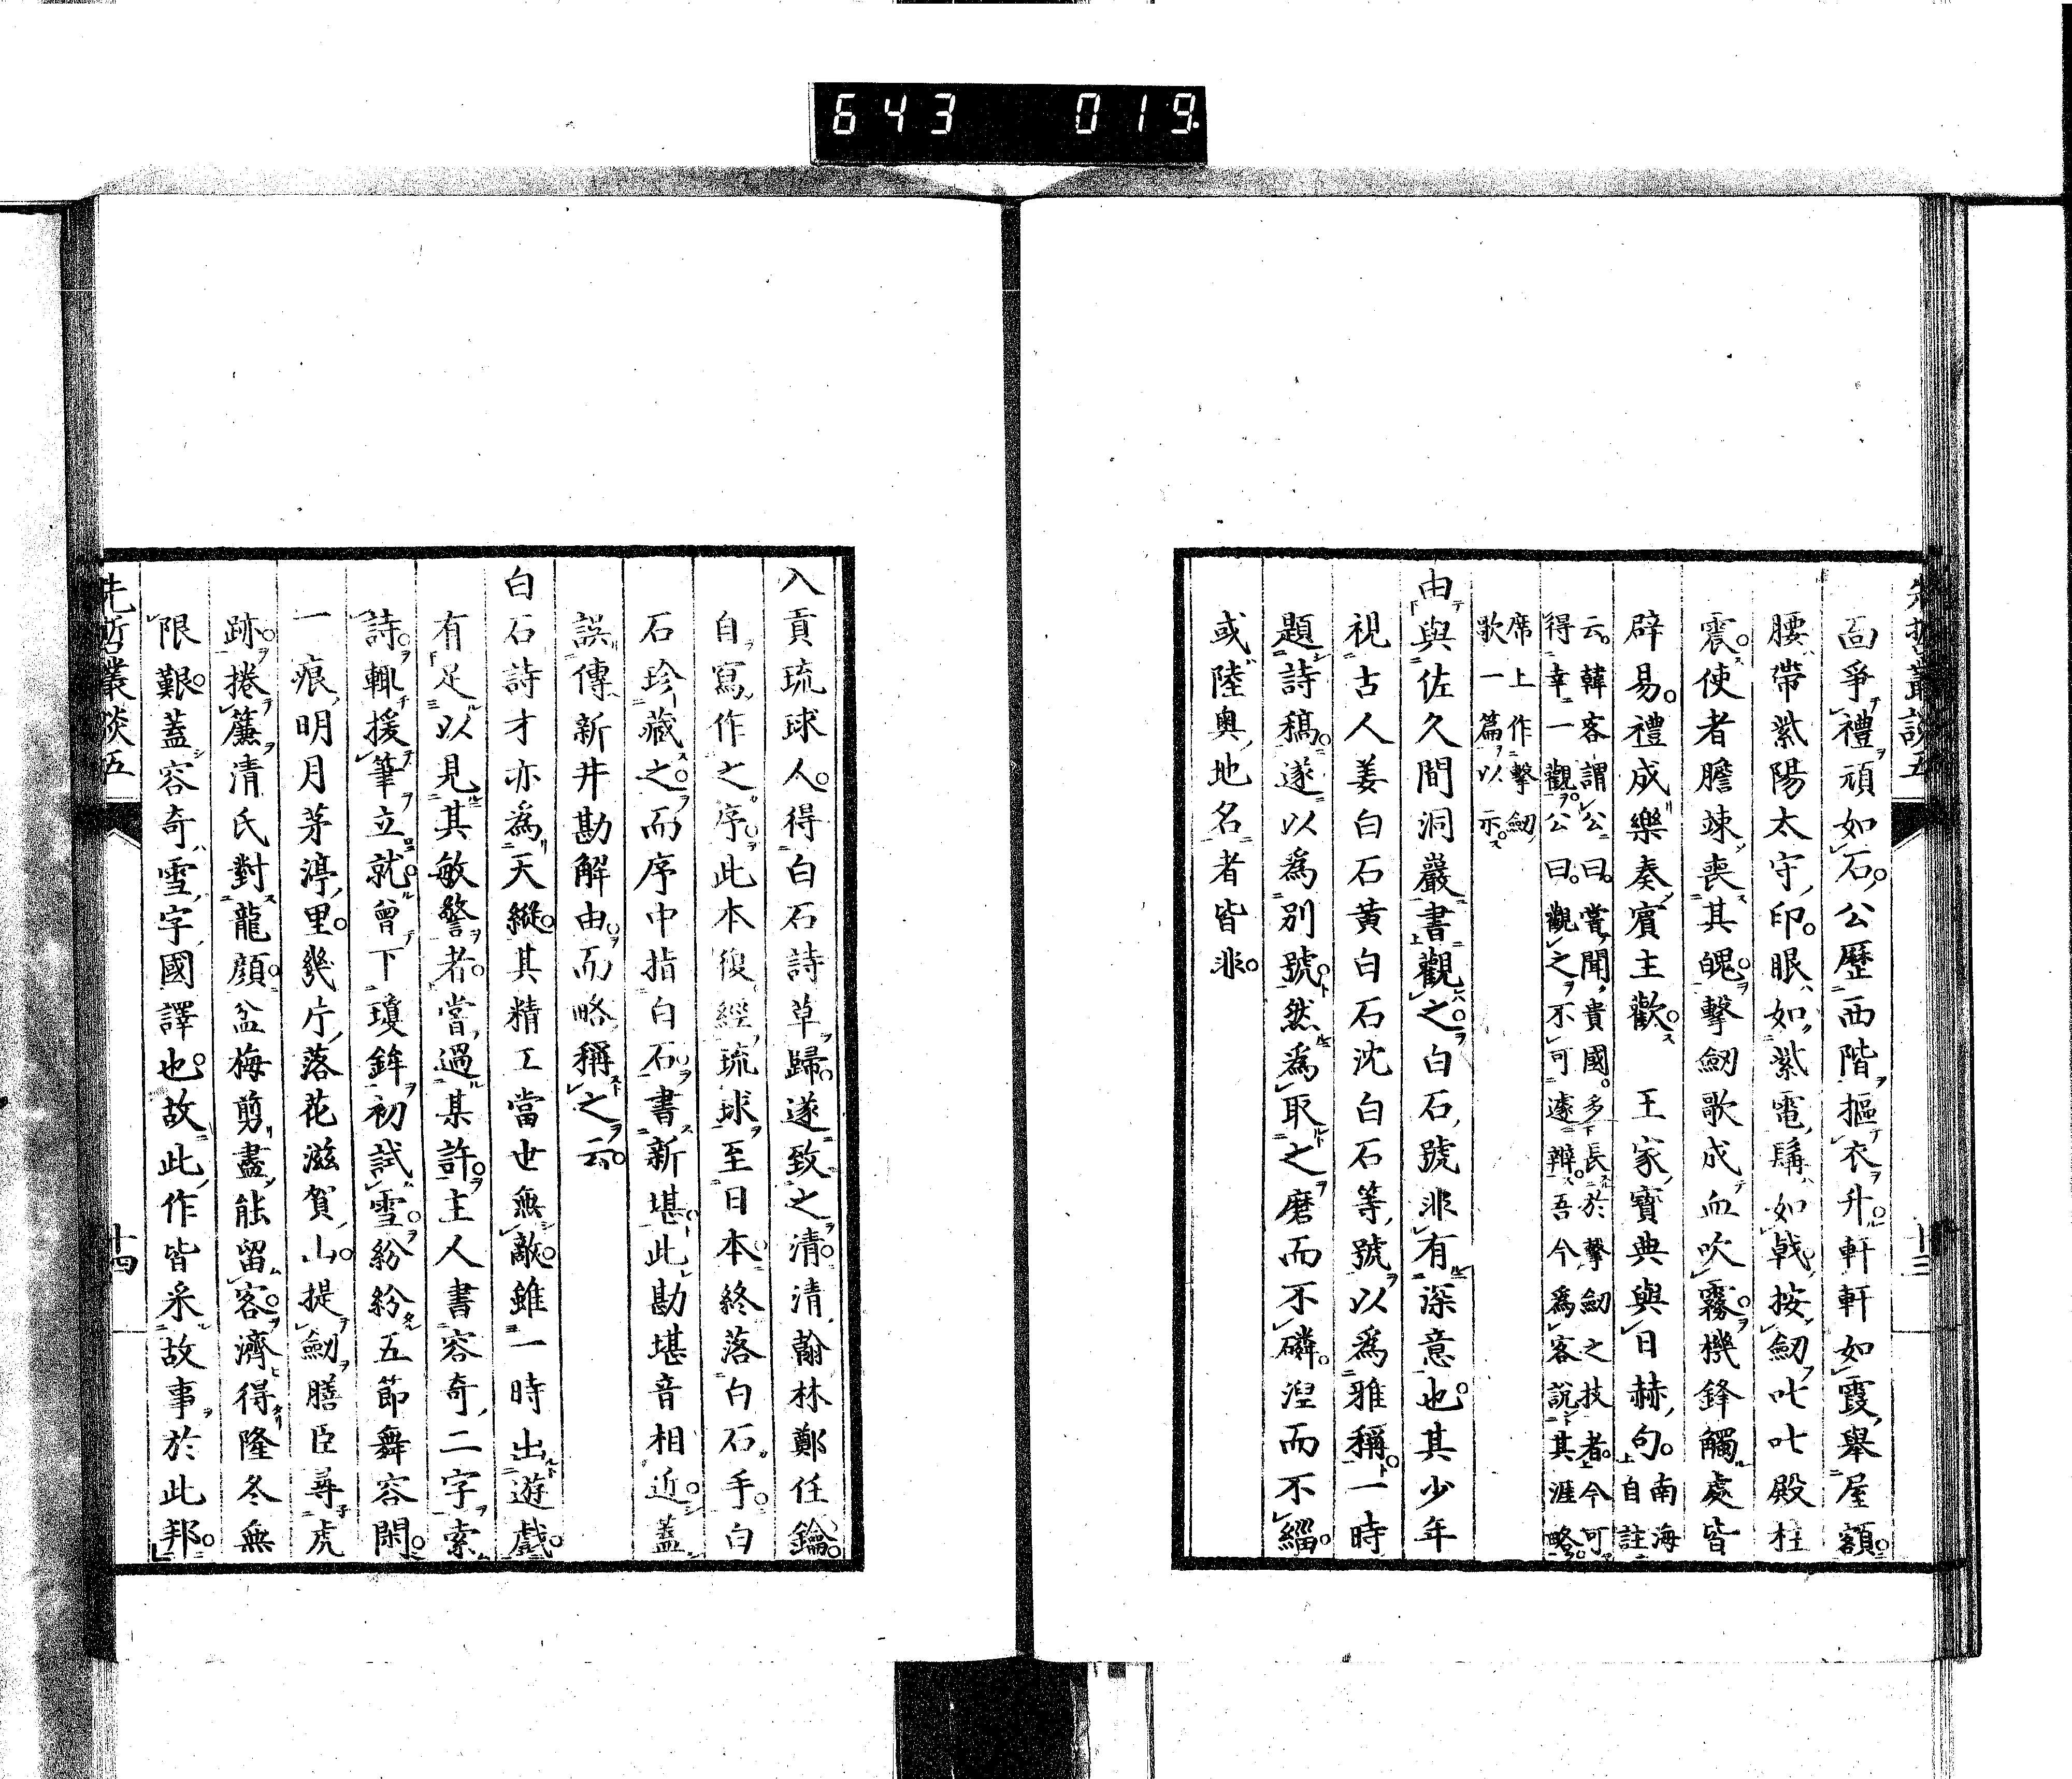 643 019
先哲叢談五
靣爭禮頑如石公歷西階摳衣升軒軒如霞舉屋額
腰帶紫陽太守印眼如紫電鬚如戟按劒叱叱殿柱
震使者膽竦喪其魄擊劒歌成血吹霧機鋒觸處皆
辟易禮成樂奏賓主歡 王家寶典與日赫句南海自註
云韓客謂公曰嘗聞貴國多長於擊劒之技者今可
得幸一觀公曰觀之不可遽辨吾今爲客說其涯略
席上作擊劒
歌一篇以示
由與佐久間洞巖書觀之白石號非有深意也其少年
視古人姜白石黃白石沈白石等號以爲雅稱一時
題詩稿遂以爲別號然爲取之磨而不磷涅而不緇
或陸奥地名者皆非
十三
入貢琉球人得白石詩草歸遂致之清清翰林鄭任鑰
自寫作之序此本復經琉球至日本終落白石手白
石珍藏之而序中指白石書新堪此勘堪音相近蓋
誤傳新井勘解由而略稱之云
白石詩才亦爲天縱其精工當世無敵雖一時出遊戲
有足以見其敏警者嘗過某許主人書容奇二字索
詩輒援筆立就曾下瓊鉾初試雪紛紛五節舞容閑
一痕明月茅渟里幾片落花滋賀山提劒膳臣尋虎
跡捲簾清氏對龍顔盆梅剪盡能留客濟得隆冬無
限艱蓋容奇雪字國譯也故此作皆采故事於此邦
先哲叢談五
十四